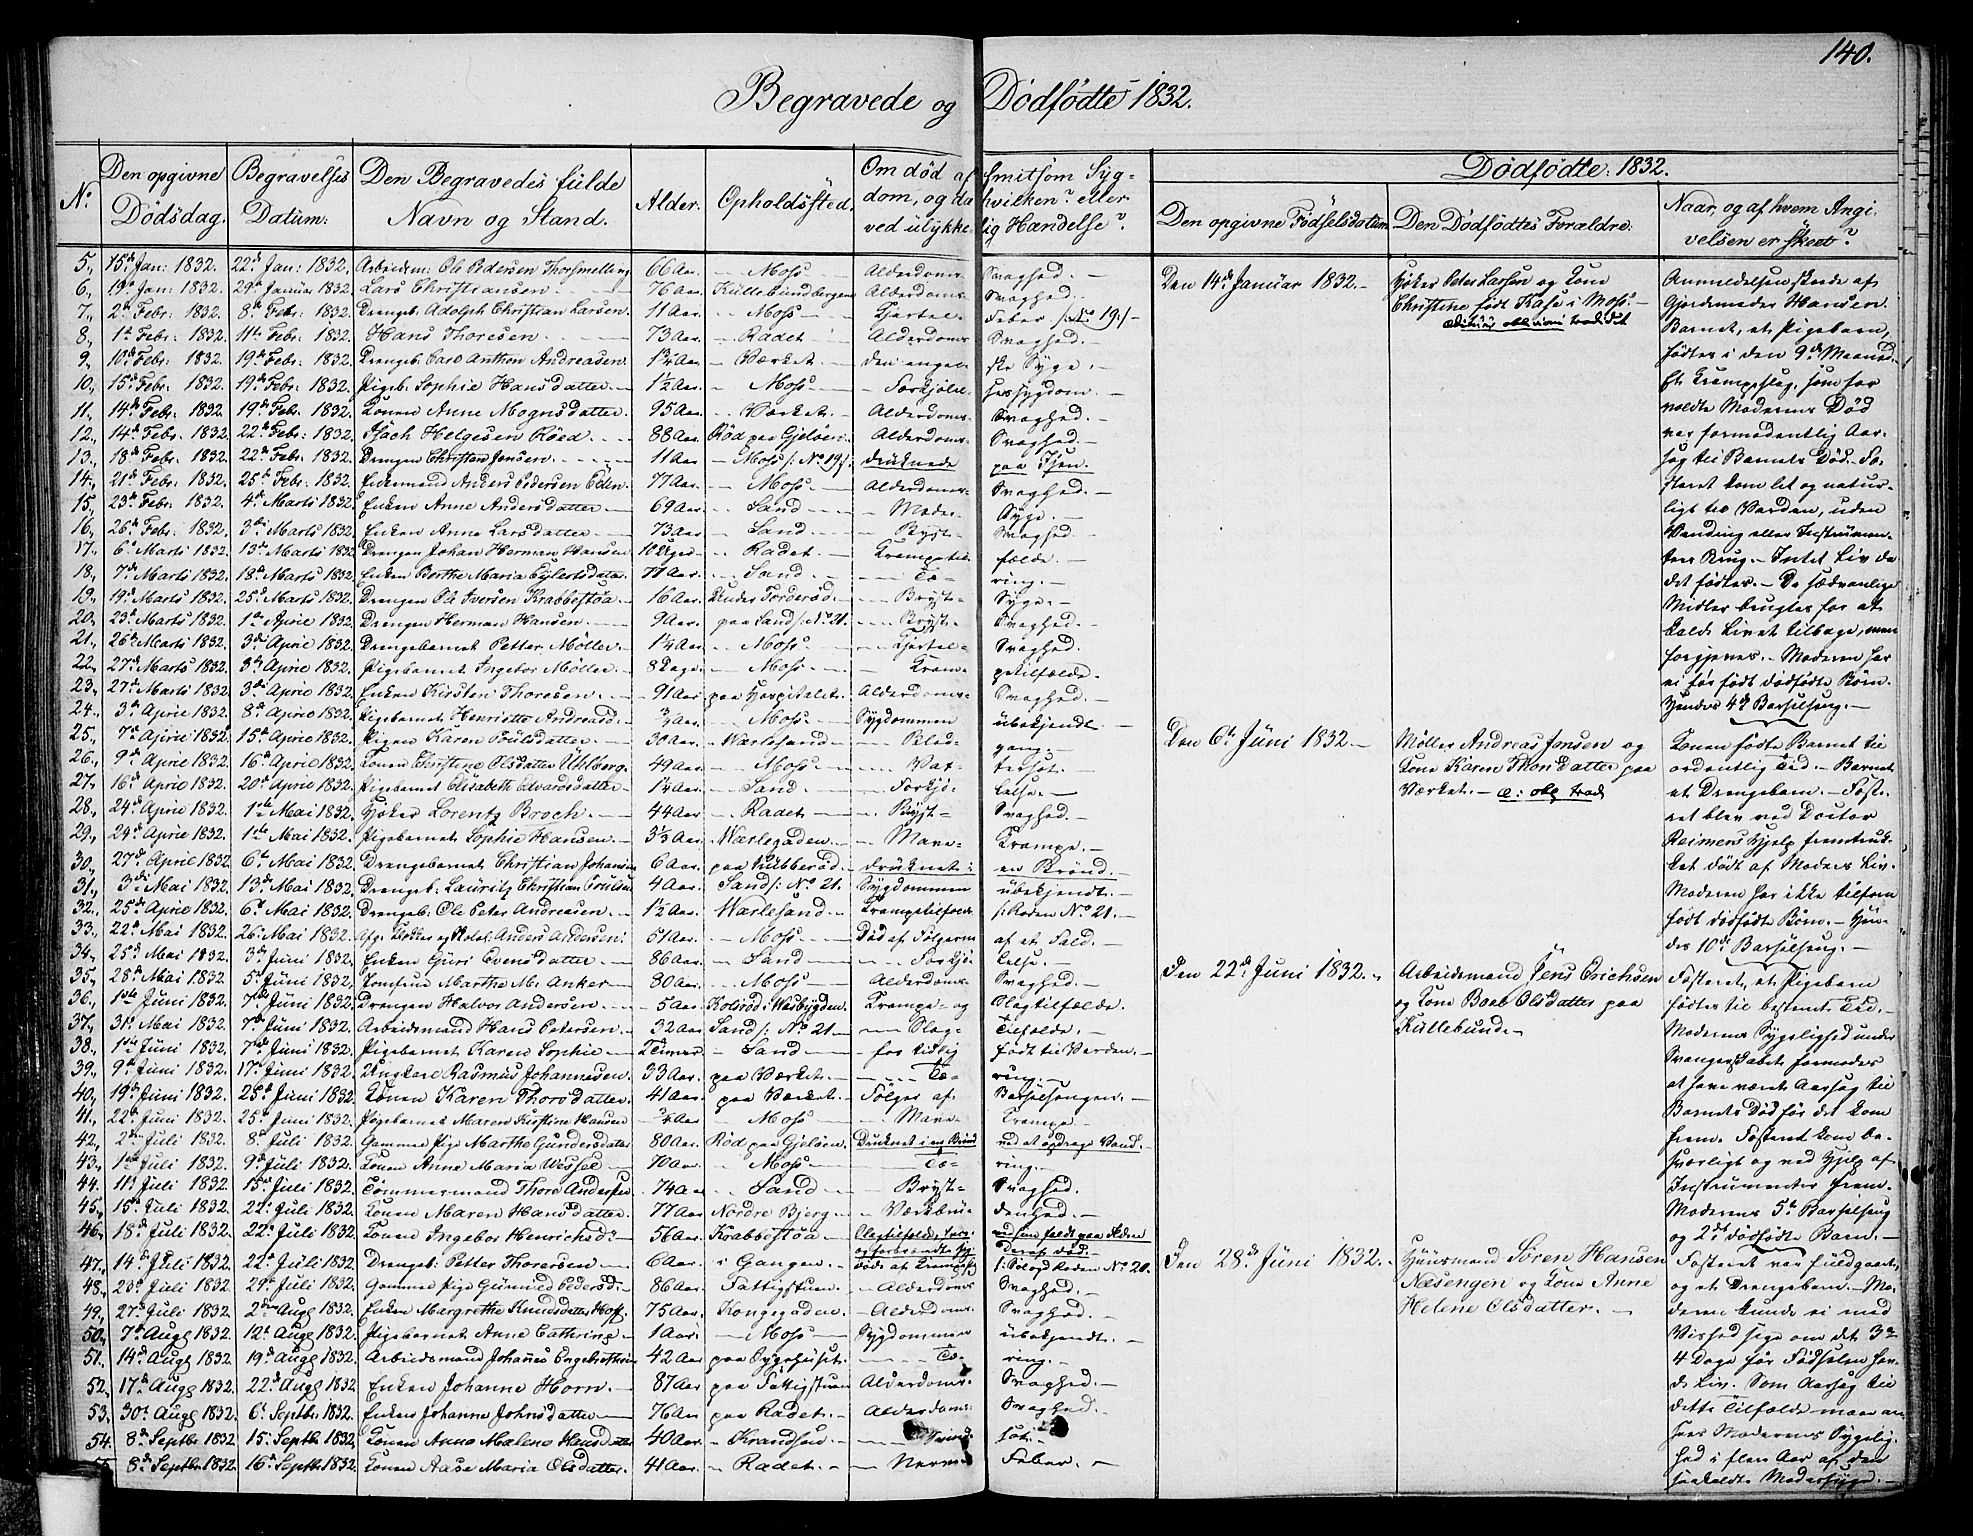 140.
Begravede og Dödfödte 1832.
No. Den opgivne Dödsdag. Begravelses Datum: Den Begravedes fulde Navn og Stand. Alder. Opholdssted. Om död af smitsom Sygdom, og da hvilken? eller ved ulykkelig Hændelse?
5., 15de Jan: 1832. 22de Jan: 1832. Arbeidsm: Ole Pedersen 66 Aar. Moss Alderdoms- Svaghed.
6., 19de Jan: 1832. 29de Januar 1832. Lars Christiansen. 76 Aar. Alderdoms- Svaghed.
7., 2den Febr. 1832. 8de Febr: 1832. Drengeb. Adolph Christian Larsen. 11 Aar. Moss. Feber
8., 1ste Febr: 1832. 11te Febr: 1832. Hans Thoresen. 73 Aar. Radet Alderdoms- Svaghed.
9., 10de Febr: 1832. 19de Febr: 1832. Drengeb: Carl Anthon Andreasen. Værket. den engelske Syge.
10., 15de Febr: 1832. 19de Febr: 1832. Pigeb: Sophie Hansdatter. 1½ Aar. Moss. Forkjölelsessygdom.
11., 14de Febr: 1832. 19de Febr: 1832. Konen Anne Mognsdatter. 95 Aar. Værket. Alderdoms- Svaghed.
12., 14de Febr: 1832. 22de Febr: 1832. Isach Helgesen Röed. 88 Aar. Röd paa Gjelöen. Alderdoms- Svaghed.
13., 18de Febr: 1832. 22de Febr: 1832. Drengen Christian Jensen. 11 Aar Moss /: No 19/. druknede paa Isen.
14., 21de Febr: 1832. 25de Febr: 1832. Enkemand Anders Pedersen 77 Aar. Moss. Alderdoms- Svaghed.
15., 23de Febr: 1832. 4de Marts 1832. Enken Anne Andersdatter. 69 Aar. Sand. Moder- Syge.
16., 26de Febr: 1832. 3die Marts 1832. Enken Anne Larsdatter. 73 Aar. Sand. Bryst- Svaghed.
17., 6te Marts 1832. 13de Marts 1832. Drengen Johan Herman Hansen 10 Uger Radet. Krampetilfælde.
18., 7de Marts 1832. 18de Marts 1832. Enken Berthe Maria Eylertsdatter. 77 Aar. Sand. Tæring.
19., 19de Marts 1832. 25de Marts 1832. Drengen Ole Iversen Krabbestöa 16 Aar. Bryst- Syge.
20., 23de Marts 1832. 1ste April 1832. Drengen Herman Hansen. 9 Aar. paa Sand /: No 21. Bryst- Svaghed.
21., 26de Marts 1832. 3die April 1832. Drengebarnet Petter Möller. 1¼ Aar. Moss. Svaghed.
22., 27de Marts 1832. 3die April 1832. Pigebarnet Ingebor Möller. 8 Dage. Moss. Krampetilfælde.
23., 27de Marts 1832. 3die April 1832. Enken Kirsten Thoresen. 91 Aar paa Hospitalet. Alderdoms- Svaghed.
24., 3die April 1832. 8de April 1832. Pigebarnet Henriette Andreasd. ¾ Aar. Moss. Sygdommen ubekjendt.
25., 7de April 1832. 15de April 1832. Pigen Karen Poulsdatter. 30 Aar. Værlesand. Blodgang.
26., 9de April 1832. 16de April 1832. Konen Christine Olsdatter Uhlberg. 49 Aar. Moss. Vattersot.
27., 16de April 1832. 20de April 1832. Pigebarnet Elisabeth Edvardsdatter. 1¼ Aar. Sand. Forkjölelse.
28., 24de April 1832. 1ste Mai 1832. Höker Lorentz Broch. 44 Aar. Radet. Bryst- Svaghed.
29., 24de April 1832. 1ste Mai 1832. Pigebarnet Sophie Hansen. 3½ Aar. Værlegaden. Mave- Krampe.
30., 27de April 1832. 6te Mai 1832. Drengebarnet Christian Johansen 6 Aar. paa Kubberöd. druknet i en Brönd.
31., 3die Mai 1832. 13de Mai 1832. Drengeb: Lauritz Christian Poulsen 4 Aar. Sand /: No 21. Sygdommen ubekjendt.
32., 25de April 1832. 6te Mai 1832. Drengeb: Ole Peter Andreasen. 1½ Aar. Værlesand. Krampetilfælde No 21.
33., 22de Mai 1832. 26de Mai 1832. Anders Andersen. 51 Aar. Moss. Död af Fölgerne af et Fald.
34., 25de Mai 1832. 3die Juni 1832. Enken Guri Evensdatter. 86 Aar. Sand. Forkjölelse.
35., 28de Mai 1832. 5te Juni 1832. Jomfrue Marthe M. Anker. 80 Aar. Moss Alderdoms- Svaghed.
36., 1ste Juni 1832. 7de Juni 1832. Drengen Halvor Andersen. 5 Aar. Kolsröd i Waabygden. Krampe- og Slagtilfælde.
37., 31te Mai 1832. 7de Juni 1832. Arbeidsmand Hans Petersen. 32 Aar Sand /: No 21. Slag- Tilfælde.
38., 1ste Juni 1832. 7de Juni 1832. Pigebarnet Karen Sophie. 2 Timer. Sand. for tidlig födt til Verden.
39., 9de Juni 1832. 17de Juni 1832. Ungkarl Rasmus Johannesen. 33 Aar. paa Værket. Tæring.
40., 19de Juni 1832. 25de Juni 1832. Konen Karen Thorsdatter. 41 Aar. paa Værket. Fölger af Barselsengen.
41., 22de Juni 1832. 25de Juni 1832. Pigebarnet Maren Kirstine Hansen ¾ Aar. Moss. Mave- Krampe.
42., 2den Juli 1832. 8de Juli 1832. Gamme Pige Marthe Gundersdatter 80 Aar. Röd paa Gjelöen. Druknet i en Brönd ved at opdrage Vand.
43., 1ste Juli 1832. 9de Juli 1832. Konen Anne Maria Wessel. 70 Aar. Moss. Tæring.
44., 11te Juli 1832. 15de Juli 1832. Tömmermand Thore Andersen 74 Aar Sand. Bryst- Svaghed.
45., 15de Juli 1832. 22de Juli 1832. Konen Maren Hansdatter. 77 Aar. Nordre Bjerg.
46., 18de Juli 1832. 22de Juli 1832. Konen Ingebor Henrichsd: 56 Aar. Krabbestöa.
47., 14de Juli 1832. 22de Juli 1832. Drengeb: Petter Thoresen. 6 Aar. i Gangen. No 20.
48., 23de Juli 1832. 29de Juli 1832. Gamme Pige Gunnild Pedersd: 86 Aar. Fattigstuen. Alderdoms- Svaghed.
49., 27de Juli 1832. 2den Aug 1832. Enken Margrethe Knudsdatter Hoff. 75 Aar. Kongegaden. Alderdoms- Svaghed.
50., 7de Aug 1832. 12te Aug 1832. Pigebarnet Anne Cathrine 1 Aar. Moss Sygdommen ubekjendt.
51., 14de Aug 1832. 19de Aug 1832. Arbeidsmand Johannes Engebrethsen 42 Aar paa Sygehuset. Tæring.
52., 17de Aug 1832. 22de Aug 1832 Enken Johanne Horn. 87 Aar paa Fattigstuen Alderdoms- Svaghed.
53., 30te Aug 1832. 6te Septbr: 1832. Enken Johanne Johnsdatter 76 Aar paa Radet. Alderdoms- Svaghed.
54. 8de Septbr 1832 15de Septbr 1832. Konen Anne Malene Hansdatter 40 Aar.
55. 8de Septbr: 1832. 16de Septbr: 1832. Konen Aase Maria Olsdatter. 41 Aar. Radet. Nerve- Feber.
Dödfödte: 1832.
Den opgivne Födselsdatum. Den Dödfödtes Forældre. Naar, og af hvem Angivelsen er skeet?
Den 14de Januar 1832. Höker Peter Larsen og Kone
Christine födt i Moss.
Anmeldelsen skede af
Gjordemoder Hansen.
Barnet, et Pigebarn,
födtes i den 9de Maaned.
Et Krampeslag, som forvoldte
Moderens Död
var formodentlig Aarsag
til Barnets Död. Fosteret
kom let og naturligt
til Verden, uden
Vending eller Instrumenters
Brug. Intet Liv da
det födtes. De sædvanlige
Midler brugtes for at
kalde Livet tilbage, men
forgjeves. Moderen har
ei för födt dödfödte Börn.
Hendes 4de Barselseng.
Den 6te Juni 1832. Möller Andreas Jensen og
Kone Karen Thorsdatter paa
Værket.
Konen födte Barnet til
ordentlig Tid. Barnet
et Drengebarn. Fosteret
blev ved Doctor
Reimers Hjelp fremtrukket
dödt af Moders Liv.
Moderen har ikke tilforn
födt dödfödte Börn. Hendes
10de Barselseng.
Den 22de Juni 1832. Arbeidsmand Jens Erichsen
og Kone Olsdatter paa
Fosteret, et Pigebarn
födtes til bestemt Tid.
Moderens Sygelighed under
Svangerskabet formodes
at have været Aarsag til
Barnets Död för det kom
frem. Fosteret kom besværligt
og ved Hjelp af
Instrumenter frem.
Moderens 5te Barselseng
og 2det dödfödte Barn.
Den 28de Juni 1832. Huusmand Sören Hansen
Næsengen og Kone Anne
Helene Olsdatter.
Fosteret var fuldgaaet,
og et Drengebarn. Moderen
kunde ei med
Vished sige om det 3 a
4 Dage för Födselen havde
Liv. Som Aarsag til
dette Tilfælde maae ansees
Moderens Sygelighed
i flere Aar af den
saakaldte Modersyge.